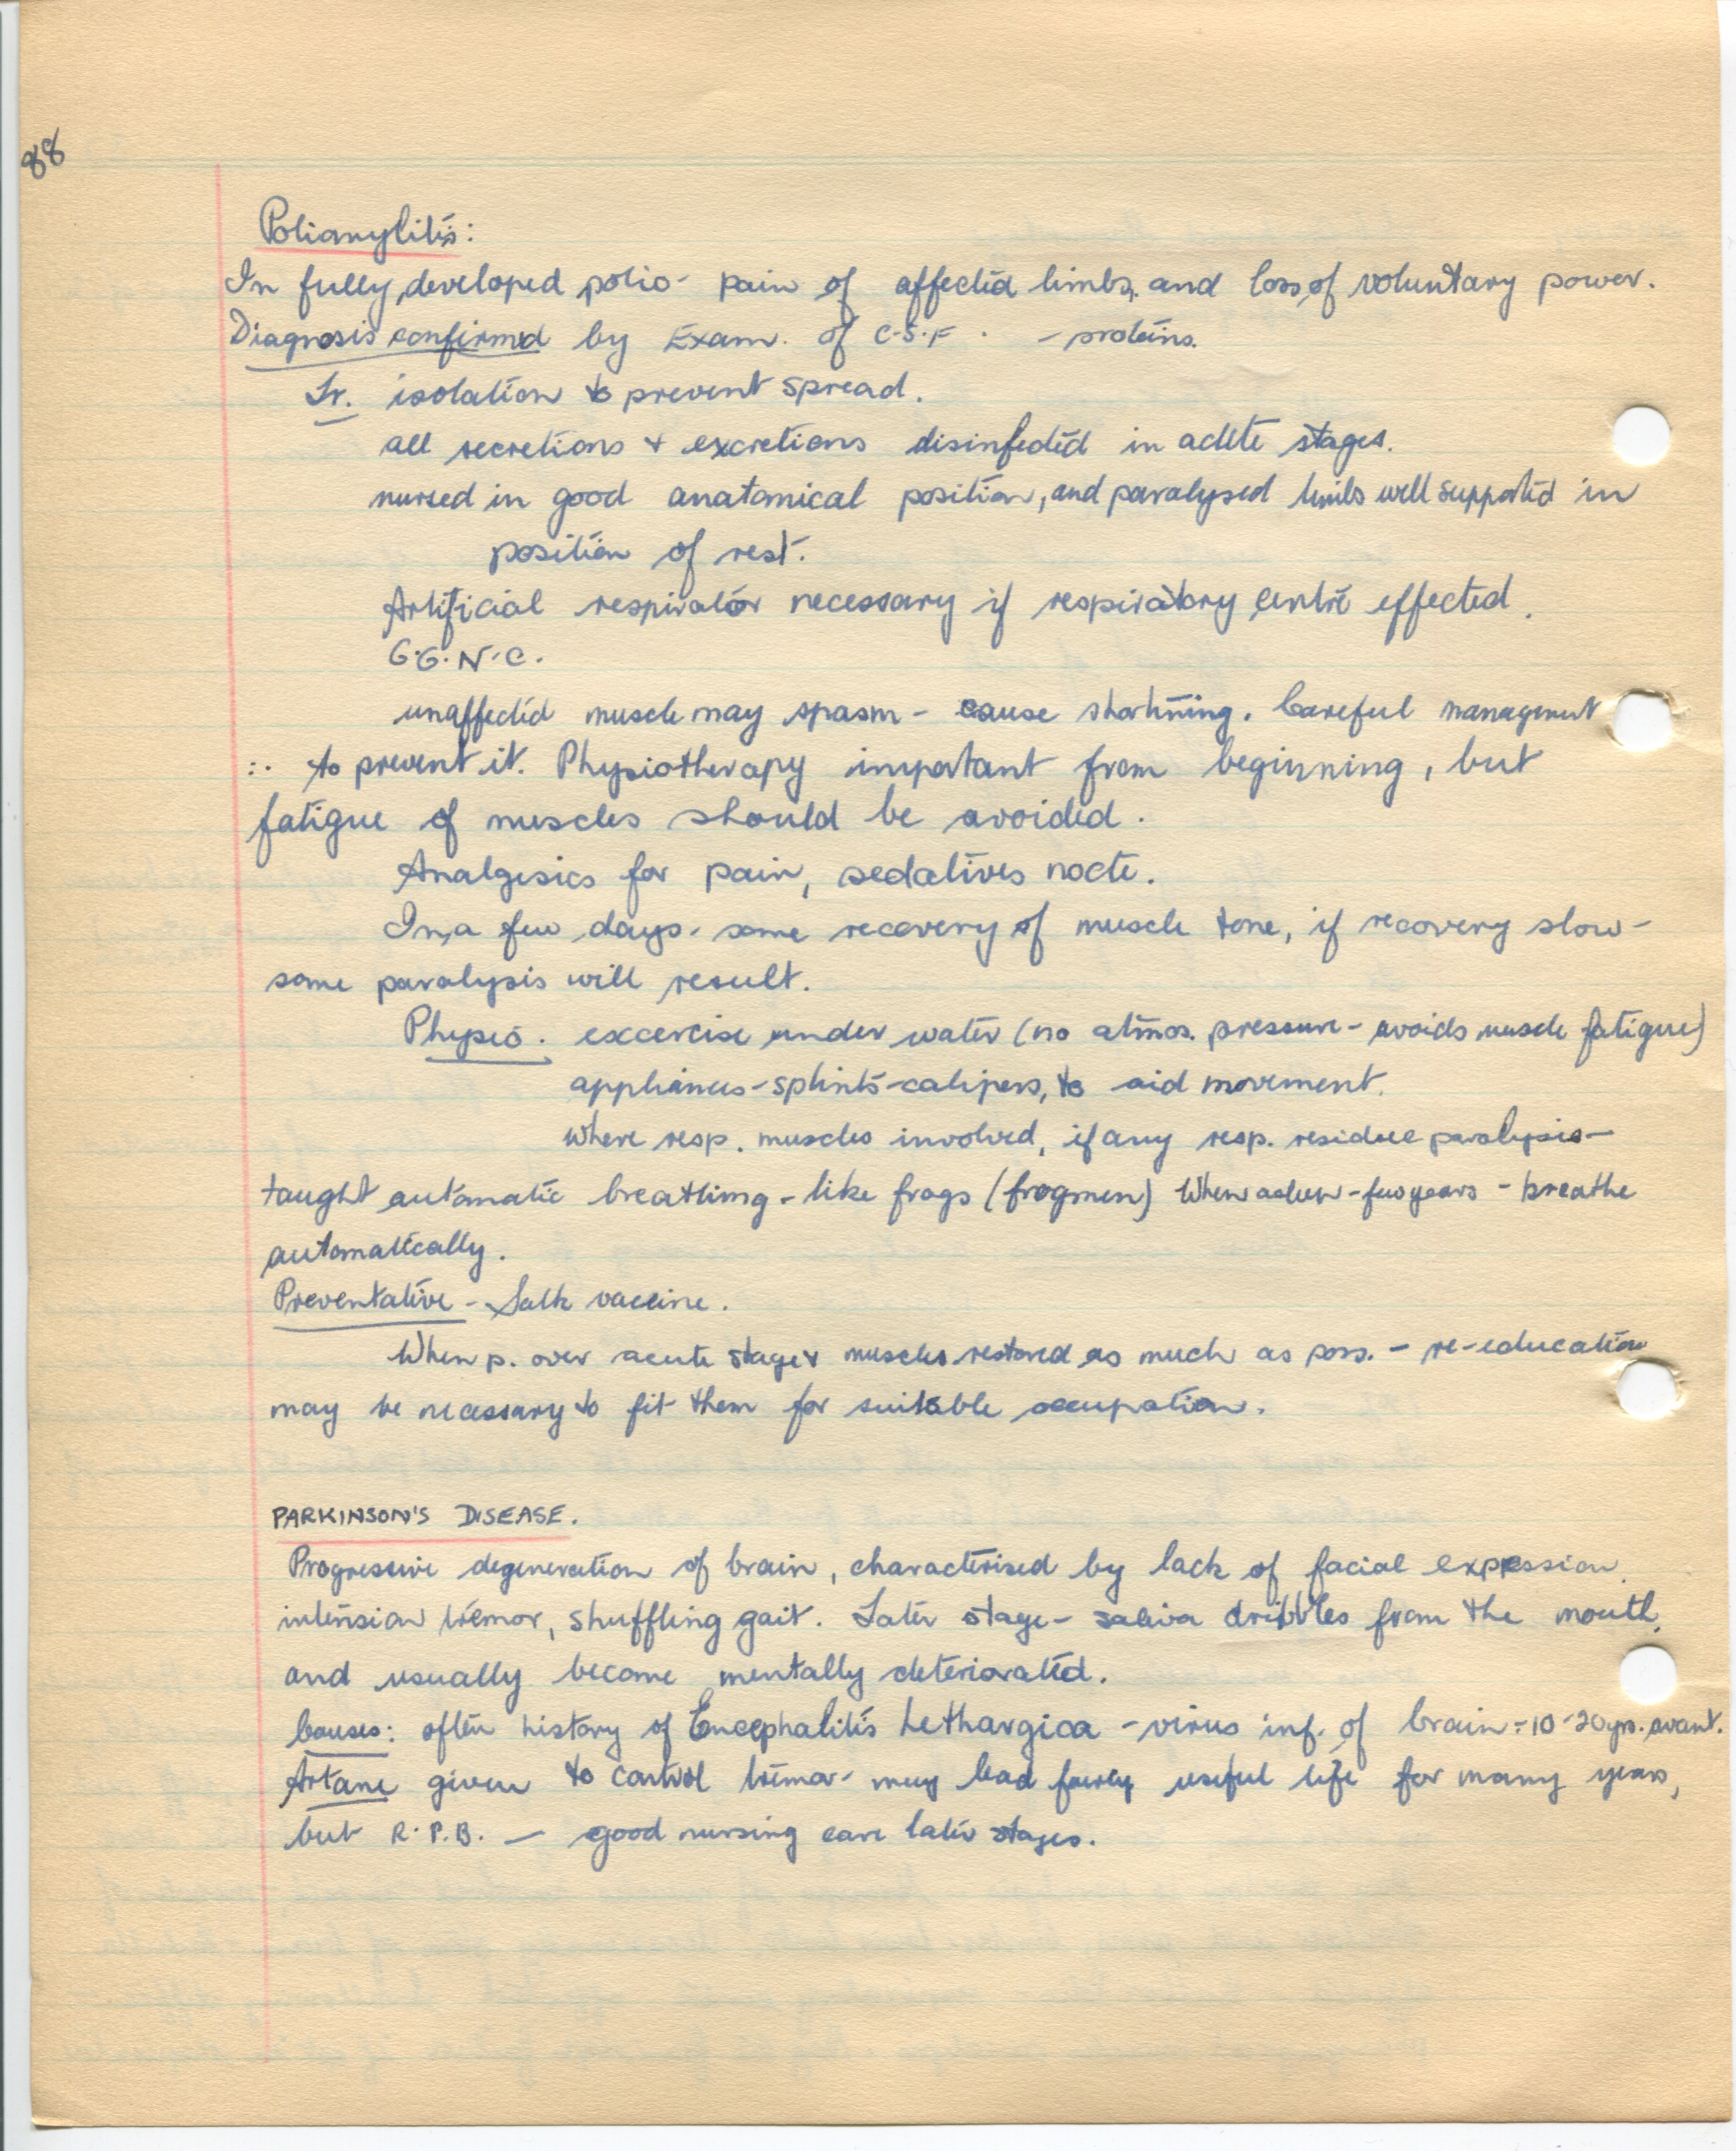 88
Poliomylitis:
In fully developed polio - pain of affected limbs, and loss of voluntary power.
Diagnosis confirmed by Exam. of C.S.F. - proteins.
Tr. isolation to prevent spread.
all secretions + excretions disinfected in acute stages.
nursed in good anatomical position, and paralysed limbs well supported in
position of rest.
Artificial respirator necessary if respiratory centre effected.
G.G.N.C.
unaffected muscle may spasm - cause shortning. Careful managment
∴ to prevent it. Physiotherapy important from beginning, but
fatigue of muscles should be avoided.
Analgesics for pain, sedatives nocte.
In a few days - some recovery of muscle tone, if recovery slow -
some paralysis will result.
Physio. excercise under water (no atmos. pressure - avoids muscle fatigue)
appliances - splints - calipers, to aid movement.
Where resp. muscles involved, if any resp. residue paralysis -
taught automatic breathing - like frogs (frogmen) When - few years - breathe
automatically.
Preventative - Salk vaccine.
When p. over acute stage & muscles restored as much as poss. - re-education
may be necessary to fit them for suitable occupation.
PARKINSON'S DISEASE.
Progressive degeneration of brain, characterised by lack of facial expression,
intension tremor, shuffling gait. Later stage - saliva dribbles from the mouth,
and usually become mentally deteriorated.
Causes: often history of Encephalitis Lethargica - virus inf. of brain - 10-20yrs. avant.
Artane given to control tremor - may lead fairly useful life for many years,
but R.P.B. — good nursing care later stages.